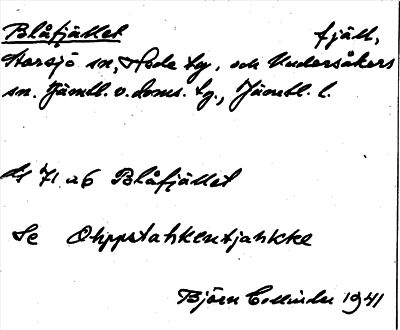 Blåfjället fjäll,
Storsjö sn, Hede tg, och Undersåkers
sn. Jämtl. v. doms. tg., Jämtl. l.
71 ab Blåfjället
Se Ohppstahkentjahkke
Björn Collinder 1941